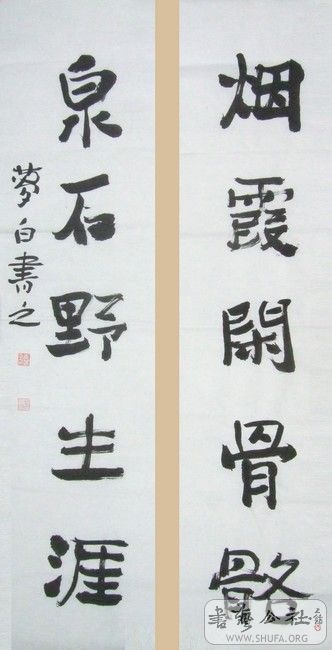 烟霞閑骨骼
泉石野生涯
夢白書之
書藝公社
WWW.SHUFA.ORG